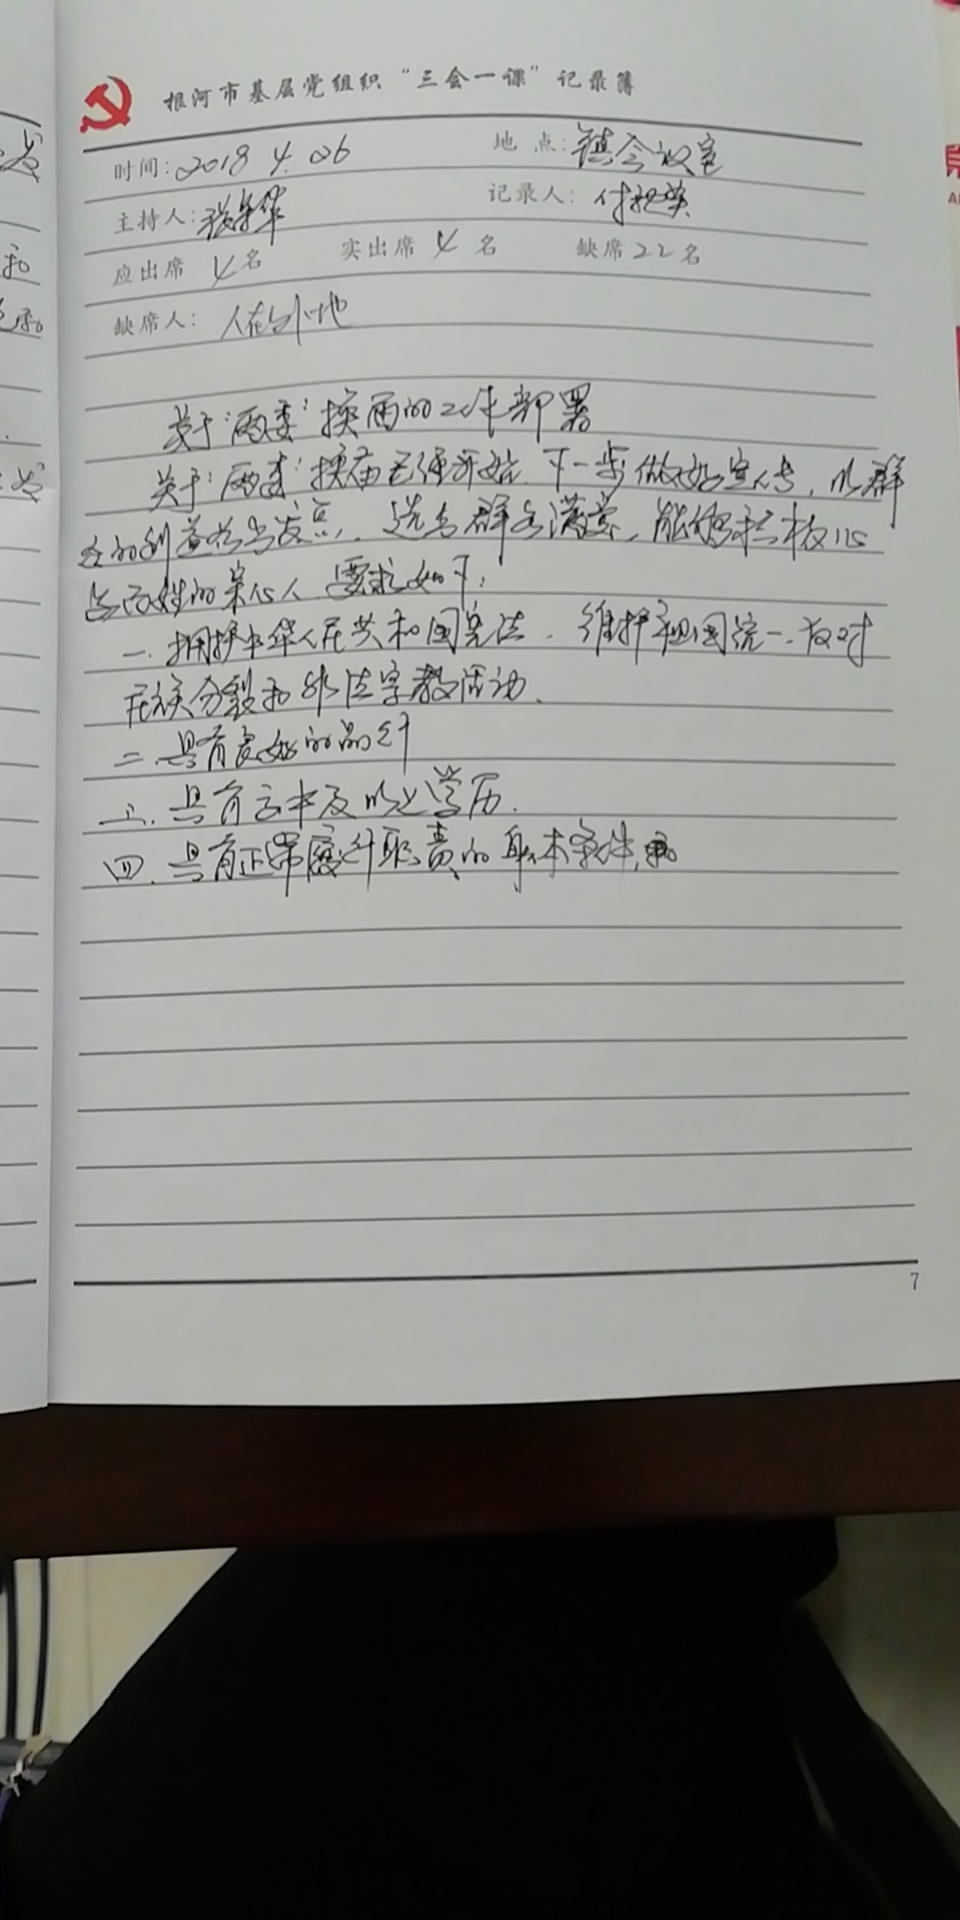 根河市基层党组织“三会一课”记录簿
时间:2018 4. 26 地点:镇会议室
主持人: 记录人:
应出席 4名 实出席 4名 缺席22名
缺席人: 人在外地
关于“两委”换届的工作部署
关于“两委”换届已经开始 下一步做好宣传,以群
众的利益为出发点,选出群众满意,能够
百姓的 人 要求如下:
一.拥护中华人民共和国宪法.维护祖国统一.反对
民族分裂和非法宗教活动.
二.具有良好的品行
三.具有高中及以上学历.
四.具有正常履行职责的身体条件,
7